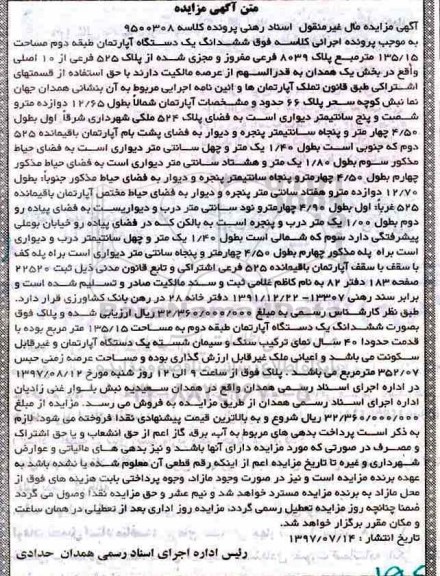 متن آگهی مزایده
آگهی مزایده مال غیرمنقول اسناد رهنی پرونده کلاسه ۹۵۰۰۳۰۸
به موجب پرونده اجرائی کلاسه فوق ششدانگ یک دستگاه آپارتمان طبقه دوم مساحت
۱۳۵/۱۵ مترمربع پلاک ۸۰۳۹ فرعی مفروز و مجزی شده از پلاک ۵۲۵ فرعی از ۱۰ اصلی
واقع در بخش یک همدان به قدرالسهم از عرصه مالکیت دارند با حق استفاده از قسمتهای
اشتراکی طبق قانون تملک آپارتمان ها و آئین نامه اجرایی مربوط به آن بنشانی همدان جهان
نما نبش کوچه سحر پلاک ۶۶ حدود و مشخصات آپارتمان شمالاً بطول ۱۲/۶۵ دوازده مترو
شصت و پنج سانتیمتر دیواری است به فضای پلاک ۵۲۴ ملکی شهرداری شرقاً اول بطول
۴/۵۰ چهار متر و پنجاه سانتیمتر پنجره و دیوار به فضای پشت بام آپارتمان باقیمانده ۵۲۵
دوم که جنوبی است بطول ۱/۴۰ یک متر و چهل سانتی متر دیواری است به فضای حیاط
مذکور سوم بطول ۱/۸۰ یک متر و هشتاد سانتی متر دیواری است به فضای حیاط مذکور
چهارم بطول ۴/۵۰ چهارمترو پنجاه سانتیمتر پنجره و دیوار به فضای حیاط مذکور جنوبا: بطول
۱۲/۷۰ دوازده مترو هفتاد سانتی متر پنجره و دیوار به فضای حیاط مختص آپارتمان باقیمانده
۵۲۵ غرباً: اول بطول ۴/۹۰ چهارمترو نود سانتی متر درب و دیواریست به فضای پیاده رو
دوم بطول ۱/۰۰ یک متر درب و پنجره است به بالکن که در فضای پیاده رو خیابان بوعلی
پیشرفتگی دارد سوم که شمالی است بطول ۱/۴۰ یک متر و چهل سانتیمتر درب و دیواری
است براه پله مذکور چهارم بطول ۴/۵۰ چهارمتر و پنجاه سانتی متر دیواری است براه پله کف
با سقف با سقف آپارتمان باقیمانده ۵۲۵ فرعی اشتراکی و تابع قانون مدنی ذیل ثبت ۲۲۵۲۰
صفحه ۱۸۳ دفتر ۸۲ به نام کاظم غلامی ثبت و سند مالکیت صادر و تسلیم شده است و
برابر سند رهنی ۱۳۳۰۷- ۱۳۹۱/۱۲/۲۲ دفتر خانه ۲۸ در رهن بانک کشاورزی قرار دارد.
طبق نظر کارشناس رسمی به مبلغ ۳۲/۳۶۰/۰۰۰/۰۰۰ ریال ارزیابی شده و پلاک فوق
بصورت ششدانگ یک دستگاه آپارتمان طبقه دوم به مساحت ۱۳۵/۱۵ متر مربع بوده با
قدمت حدودا ۴۰ سال نمای ترکیب سنگ و سیمان شسته یک دستگاه آپارتمان و غیرقابل
سکونت می باشد و اعیانی ملک غیرقابل ارزش گذاری بوده و مساحت عرصه زمنی حبس
۳۵۲/۰۷ مترمربع می باشد . پلاک فوق از ساعت ۹ الی ۱۲ روز شنبه مورخ ۱۳۹۷/۰۸/۱۲
در اداره اجرای اسناد رسمی همدان واقع در همدان سعیدیه نبش بلوار غنی زادیان
اداره اجرای اسناد رسمی همدان از طریق مزایده به فروش می رسد. مزایده از مبلغ
۳۲/۳۶۰/۰۰۰/۰۰۰ ریال شروع و به بالاترین قیمت پیشنهادی نقدا فروخته می شود: لازم
به ذکر است پرداخت بدهی های مربوط به آب، برق، گاز اعم از حق انشعاب و یا حق اشتراک
و مصرف در صورتی که مورد مزایده دارای آنها باشد و نیز بدهی های مالیاتی و عوارض
شهرداری و غیره تا تاریخ مزایده اعم از اینکه رقم قطعی آن معلوم شده یا نشده باشد به
عهده برنده مزایده است و نیز در صورت وجود مازاد، وجوه پرداختی بابت هزینه های فوق از
محل مازاد به برنده مزایده مسترد خواهد شد و نیم عشر و حق مزایده نقدا وصول می گردد
ضمنا چنانچه روز مزایده تعطیل رسمی گردد، مزایده روز اداری بعد از تعطیلی در همان ساعت
و مکان مقرر برگزار خواهد شد.
تاریخ انتشار : ۱۳۹۷/۰۷/۱۴
رئیس اداره اجرای اسناد رسمی همدان حدادی